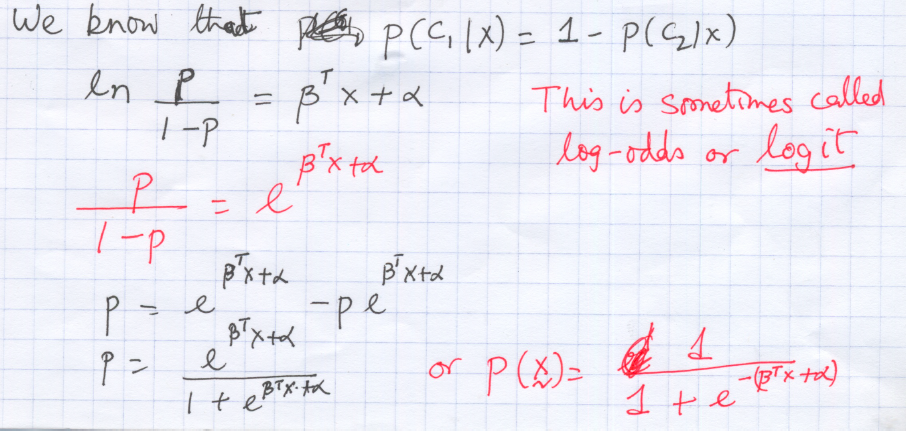 We know that P(C₁|X) = 1 - P(C₂|x)
ln P/(1-P) = βᵀx + α
This is sometimes called
log-odds or logit
P/(1-P) = e^(βᵀx+α)
P = e^(βᵀx+α) - p e^(βᵀx+α)
P = e^(βᵀx+α)/(1 + e^(βᵀx+α)) or P(x) = 1/(1 + e^(-(βᵀx+α)))